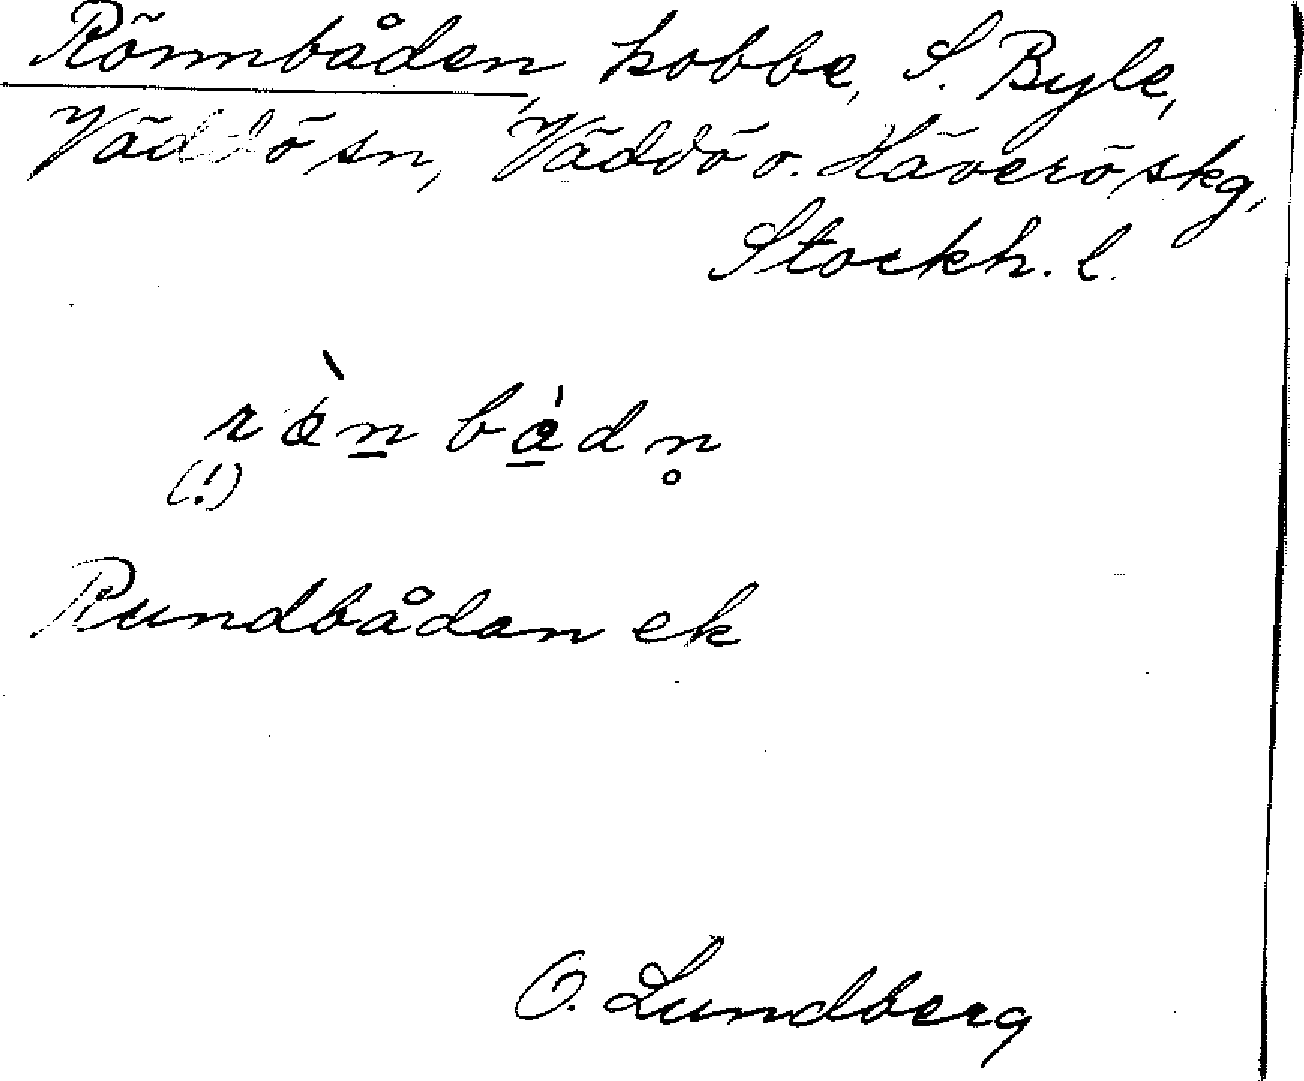 Rönnbåden, kobbe, S. Byle,
Väddö sn, Väddö o. Häverö skg,
Stockh. l.
rön bådn
(!)
Rundbådan ek
O. Lundberg